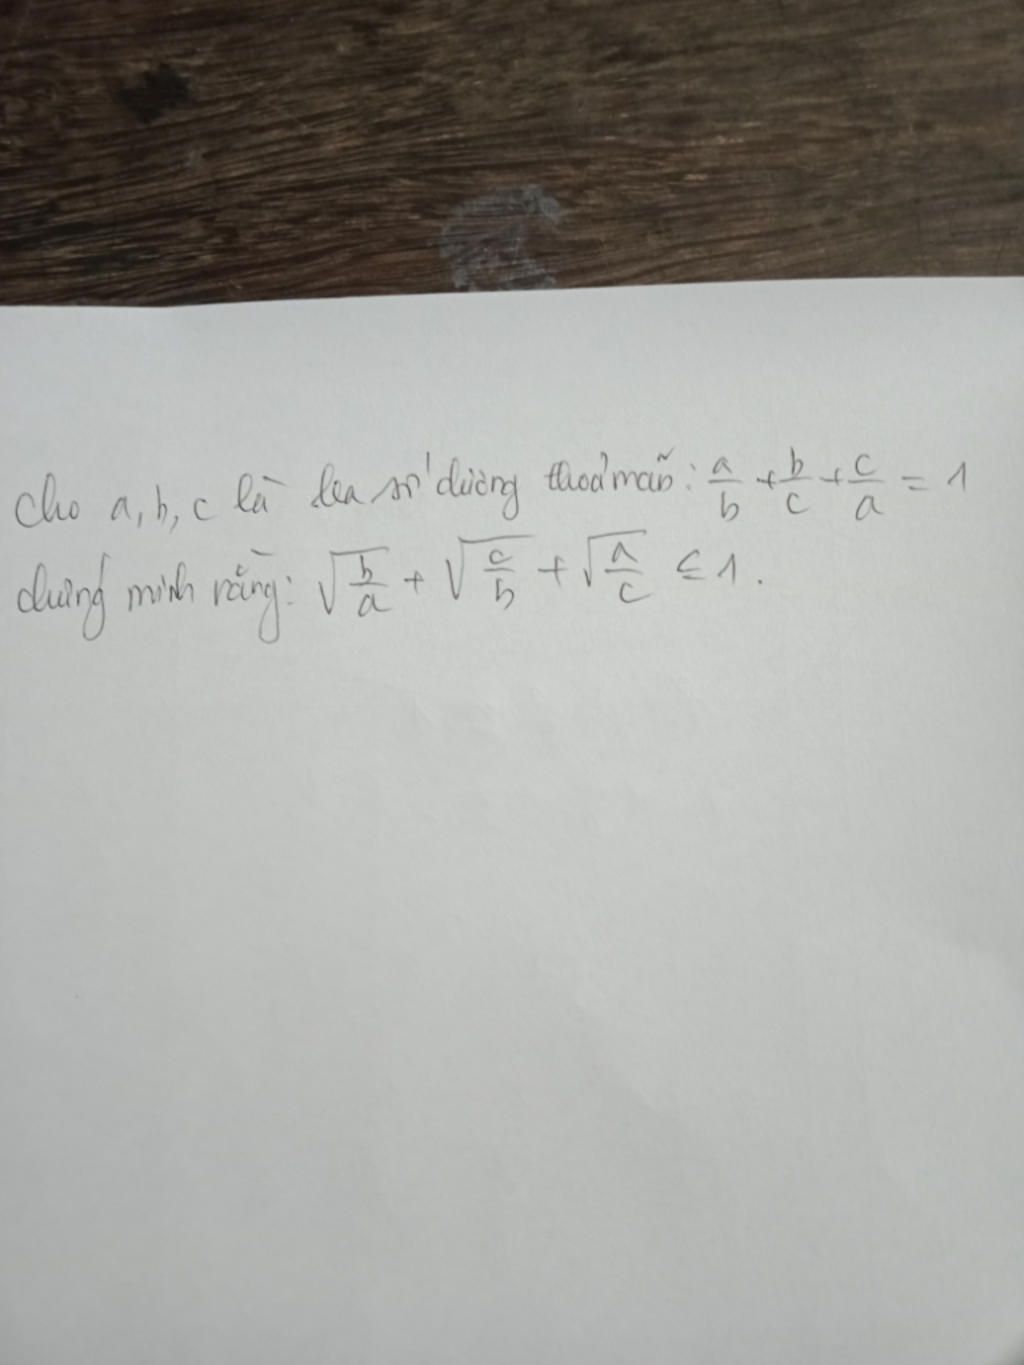 Cho a, b, c là ba số dương thoả mãn: a/b + b/c + c/a = 1
chứng minh rằng: √(b/a) + √(c/b) + √(a/c) ≤ 1.